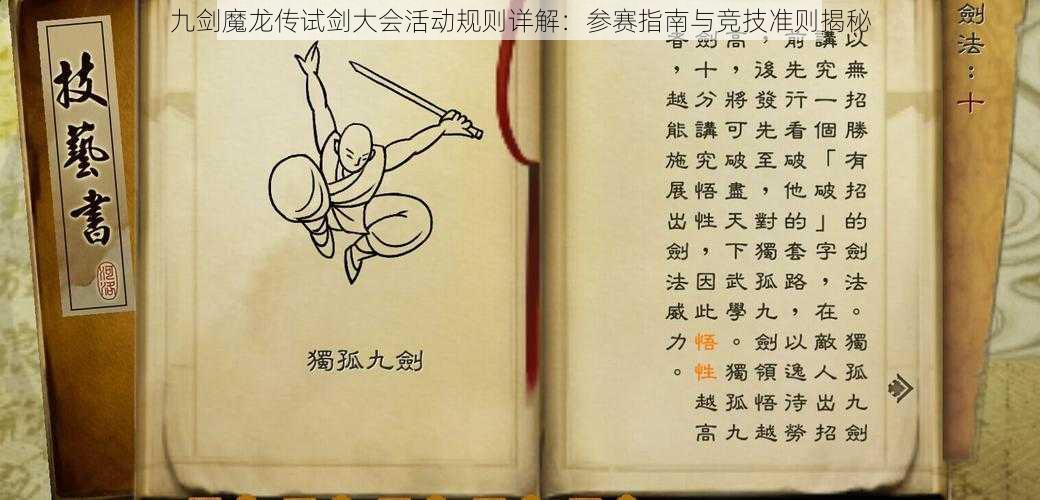 九剑魔龙传试剑大会活动规则详解：参赛指南与竞技准则揭秘
劍法：十
以無招勝有招的劍法。獨孤九劍
講究一個「破」字，在敵人出招
前先行看破他的套路，以逸待勞
，後發先至，對獨孤九劍領悟越
高，將可破盡天下武學。獨孤九
劍十分講究悟性，因此悟性越高
者，越能施展出劍法威力。
獨孤九劍
技藝書
河洛